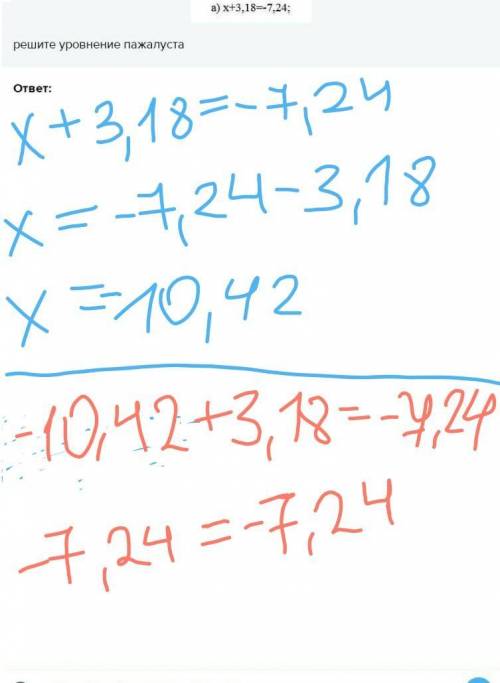 а) x+3,18=-7,24;
решите уровнение пажалуста
Ответ:
x+3,18=-7,24
x=-7,24-3,18
x=-10,42
-10,42+3,18=-7,24
-7,24=-7,24